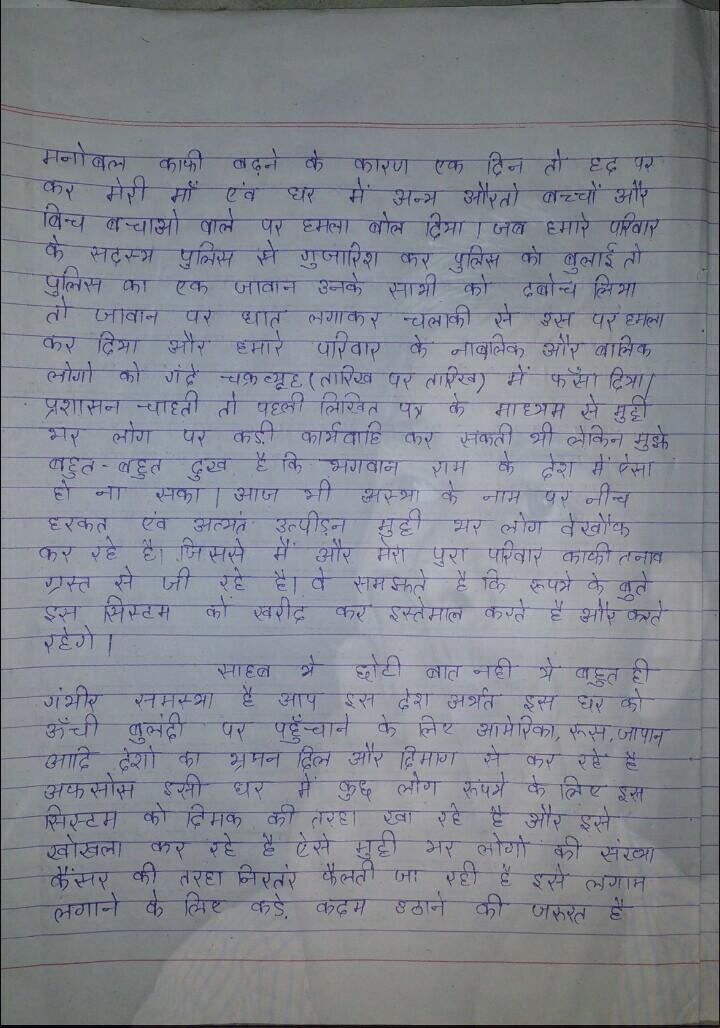 मनोबल काफी बढ़ने के कारण एक दिन तो हद पर
कर मेरी माँ एवं घर में अन्य औरतो बच्चों और
बिच बचाओ वाले पर हमला बोल दिया। जब हमारे परिवार
के सदस्य पुलिस से गुजारिश कर पुलिस को बुलाई तो
पुलिस का एक जावान उनके साथी को दबोच लिया
तो जावान पर घात लगाकर चलाकी से इस पर हमला
कर दिया और हमारे परिवार के नाबलिक और बालिक
लोगो को गंदे चक्रव्यूह (तारिख पर तारिख) में फँसा दिया।
प्रशासन चाहती तो पहली लिखित पत्र के माध्यम से मुट्ठी
भर लोग पर कड़ी कार्यवाहि कर सकती थी लेकिन मुझे
बहुत-बहुत दुख है कि भगवान राम के देश में ऐसा
हो ना सका। आज भी अस्था के नाम पर नीच
हरकत एवं अत्यंत उत्पीड़न मुट्ठी भर लोग वेखौफ
कर रहे है। जिससे मैं और मेरा पुरा परिवार काफी तनाव
ग्रस्त से जी रहे है। वे समझते है कि रूपये के बुते
इस सिस्टम को खरीद कर इस्तेमाल करते है और करते
रहेगे।
साहब ये छोटी बात नही ये बहुत ही
गंभीर समस्या है आप इस देश अर्थत इस घर को
ऊँची बुलंदी पर पहुँचाने के लिए आमेरिका, रूस, जापान
आदि देशो का भ्रमन दिल और दिमाग से कर रहे है
अफसोस इसी घर में कुछ लोग रूपये के लिए इस
सिस्टम को दिमक की तरहा खा रहे है और इसे
खोखला कर रहे है ऐसे मुट्ठी भर लोगो की संख्या
कैंसर की तरहा निरतंर फैलती जा रही है इसे लगाम
लगाने के लिए कड़े कदम उठाने की जरूरत है